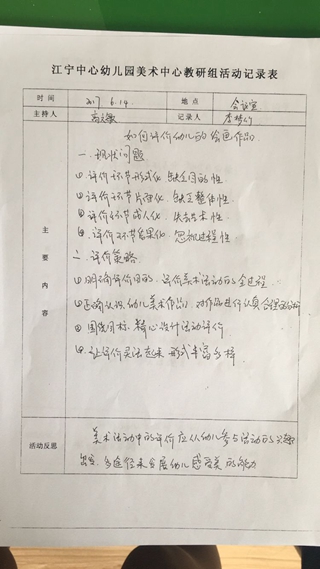 江宁中心幼儿园美术中心教研组活动记录表
时间 2017 6.14. 地点 会议室
主持人 记录人
如何评价幼儿的绘画作品
一.现状问题
①评价环节形式化 缺乏目的性
②评价环节片面化.缺乏整体性.
③评价环节成人化.失去艺术性.
④.评价环节结果化.忽视过程性
主要内容
二.评价策略.
①明确评价目的.评价美术活动的全过程
②正确认识幼儿美术作品.对作品进行认真合理的分析
③围绕目标.精心设计活动评价
④让评价灵活起来 形式丰富多样
活动反思
美术活动中的评价应从幼儿参与活动的兴趣
出发.多途径来发展幼儿感受美的能力